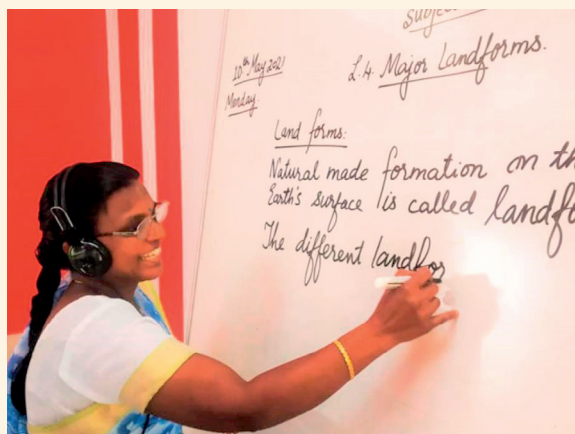 Subject
10th May 2021
Monday.
L.4. Major Landforms.
Land forms:
Natural made formation on th
Earth's surface is called landfo
The different landfor